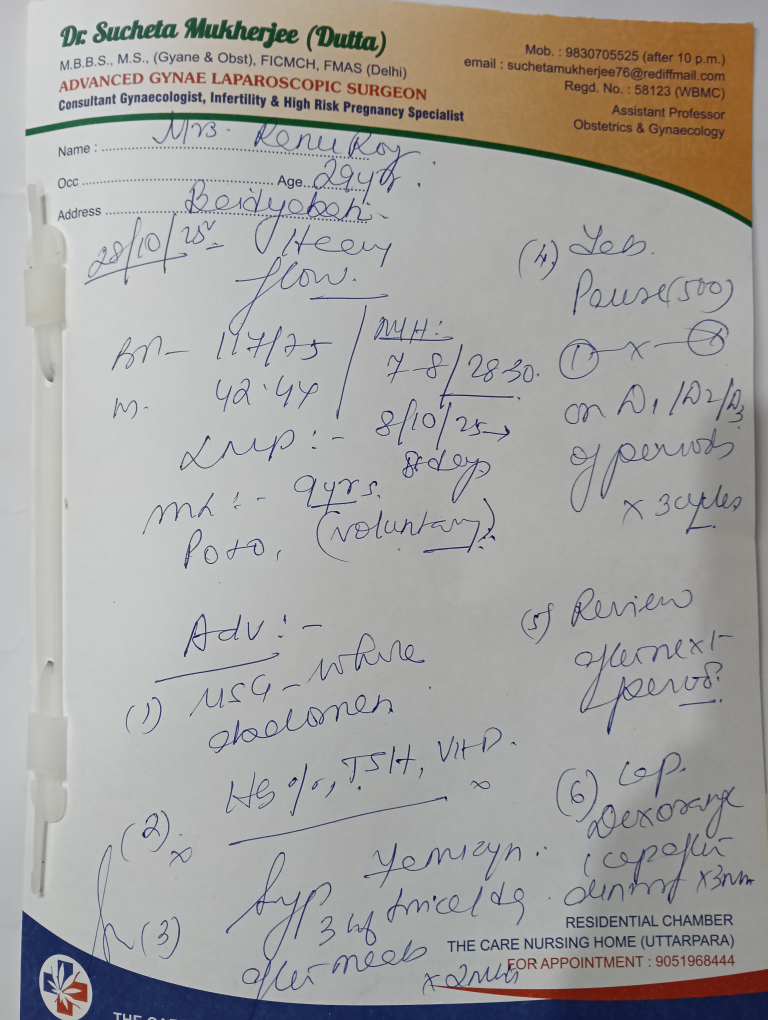 Dr. Sucheta Mukherjee (Dutta)
M.B.B.S., M.S., (Gyane & Obst), FICMCH, FMAS (Delhi)
ADVANCED GYNAE LAPAROSCOPIC SURGEON
Consultant Gynaecologist, Infertility & High Risk Pregnancy Specialist
Mob. : 9830705525 (after 10 p.m.)
email : suchetamukherjee76@rediffmail.com
Regd. No. : 58123 (WBMC)
Assistant Professor
Obstetrics & Gynaecology
Name : Mrs. Renu Roy
Occ Age 29 yrs.
Address
28/10/25 Heavy
flow.
117/75
MH:
42.44
7-8/28-30.
LMP :- 8/10/25→
8 days
9yrs.
P0+0, (voluntary)
Adv :-
(1) USG - Whole
abdomen
(2) Hb%, TSH, Vit D.
(3) Syp
3 twice
after meals
(4) Tab.
Pause (500)
1 - x - 
on D1/D2/D3
of periods
x 3 cycles
(5) Review
after next
period.
(6) Cap.
Dexorange
1 cap after
dinner
RESIDENTIAL CHAMBER
THE CARE NURSING HOME (UTTARPARA)
FOR APPOINTMENT : 9051968444